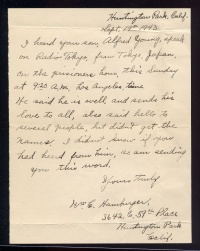 Huntington Park, Calif.
Sept. 19th 1943
I heard your son, Alfred Young, speak
on Radio Tokyo, from Tokyo, Japan,
on the prisoners hour, this Sunday
at 9:30 A.M., Los Angeles time
He said he is well and sends his
love to all, also said hello to
several people, but didn't get the
names, I didn't know if you
had heard from him, so am sending
you this word.
Yours Truly
Wm E. Hamburger,
3642 E. 57th Place
Huntington Park
Calif.